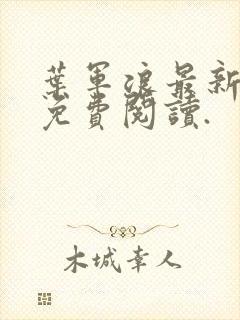 葉軍浪最新
免費閱讀.
木城幸人